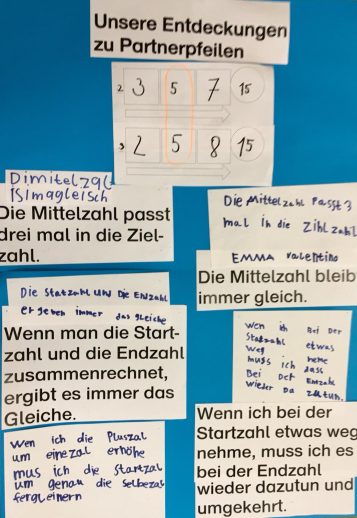 Unsere Entdeckungen
zu Partnerpfeilen
2. 3 5 7 15
3 2 5 8 15
Dimitelzal
ISImagleisch
Die Mittelzahl passt
drei mal in die Ziel-
zahl.
Die Mittelzahl Passt 3
mal in die Zihlzahl
EMMA Valentino
Die Mittelzahl bleib
immer gleich.
Die Statzahl und Die Enzahl
ergeben immer das gleiche
Wenn man die Start-
zahl und die Endzahl
zusammenrechnet,
ergibt es immer das
Gleiche.
Wen ich Bei Der
Statzahl etwas
Weg neme
muss ich dass
Bei Der Enzahl
wieder Da zutun.
Wen ich die Pluszal
um einezal erhöhe
mus ich die Startzal
um genau die selbezal
fergleinern
Wenn ich bei der
Startzahl etwas weg
nehme, muss ich es
bei der Endzahl
wieder dazutun und
umgekehrt.